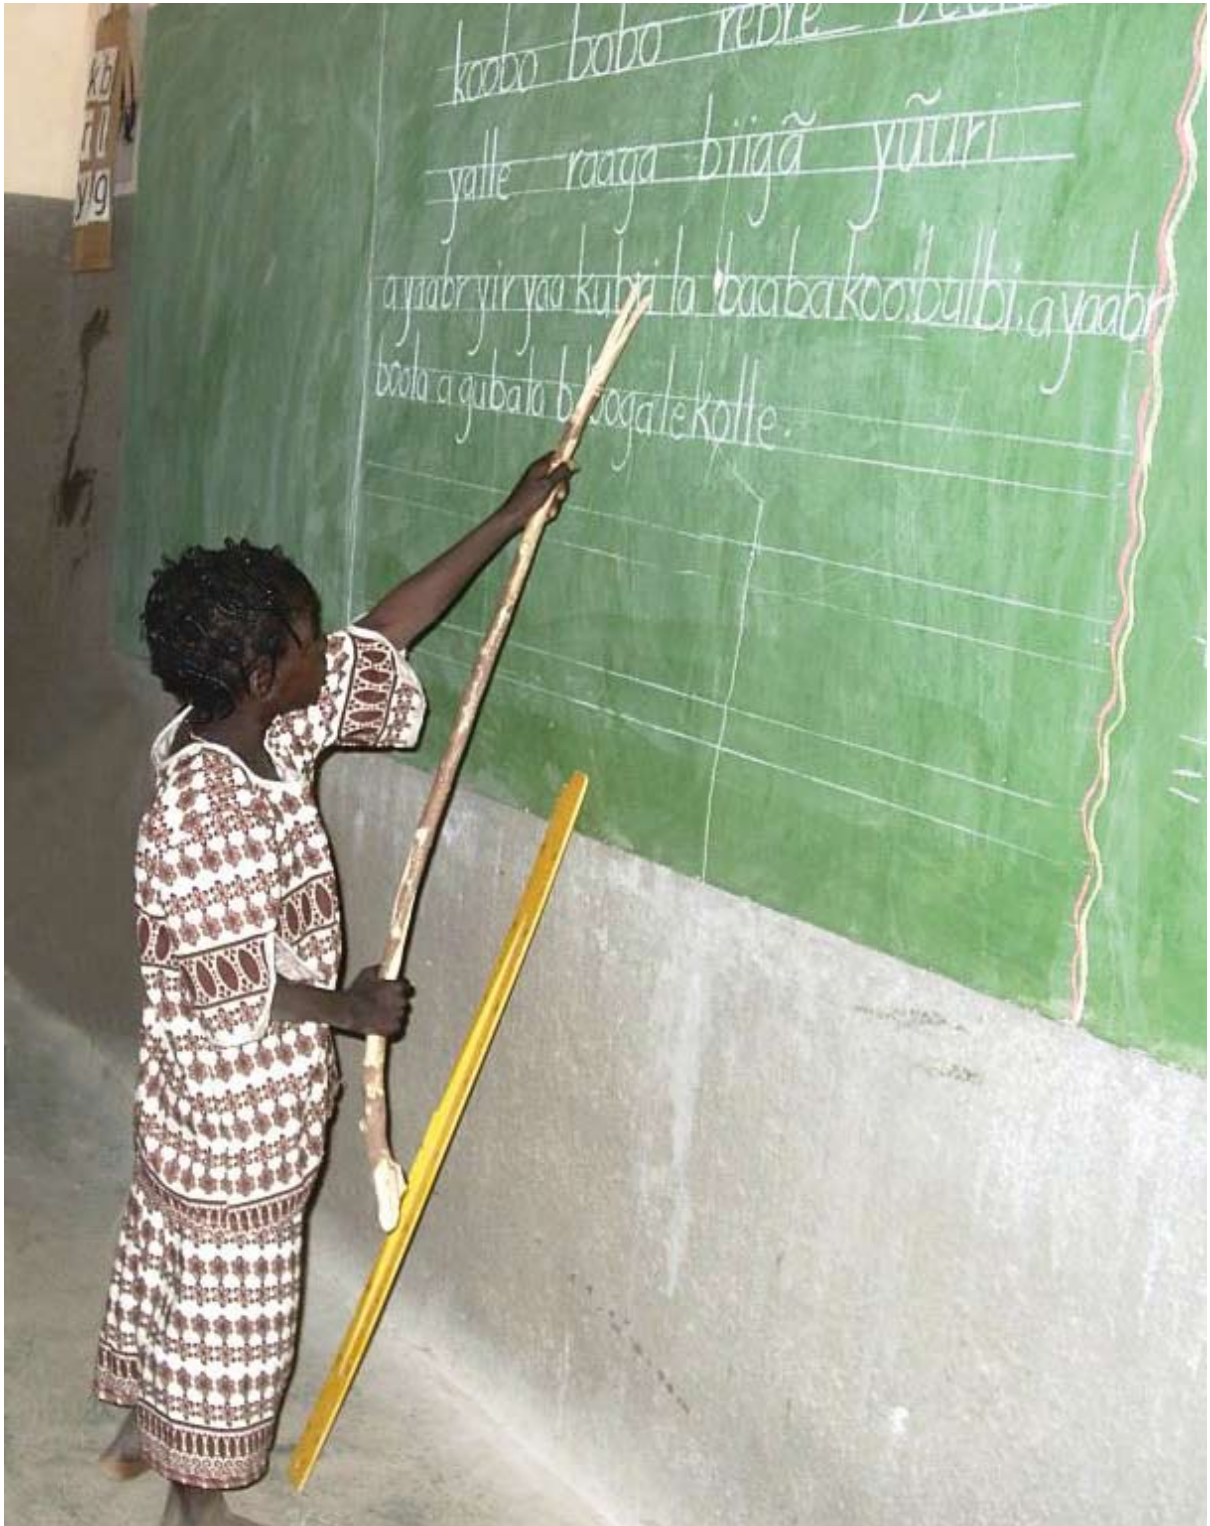 kb
rl
yg
koobo bobo rebre
yalle raaga biigã yũuri
a yaabr yir yaa kubri la baaba koo. bulbi. a yaabr
boola a gubala b
kolle.